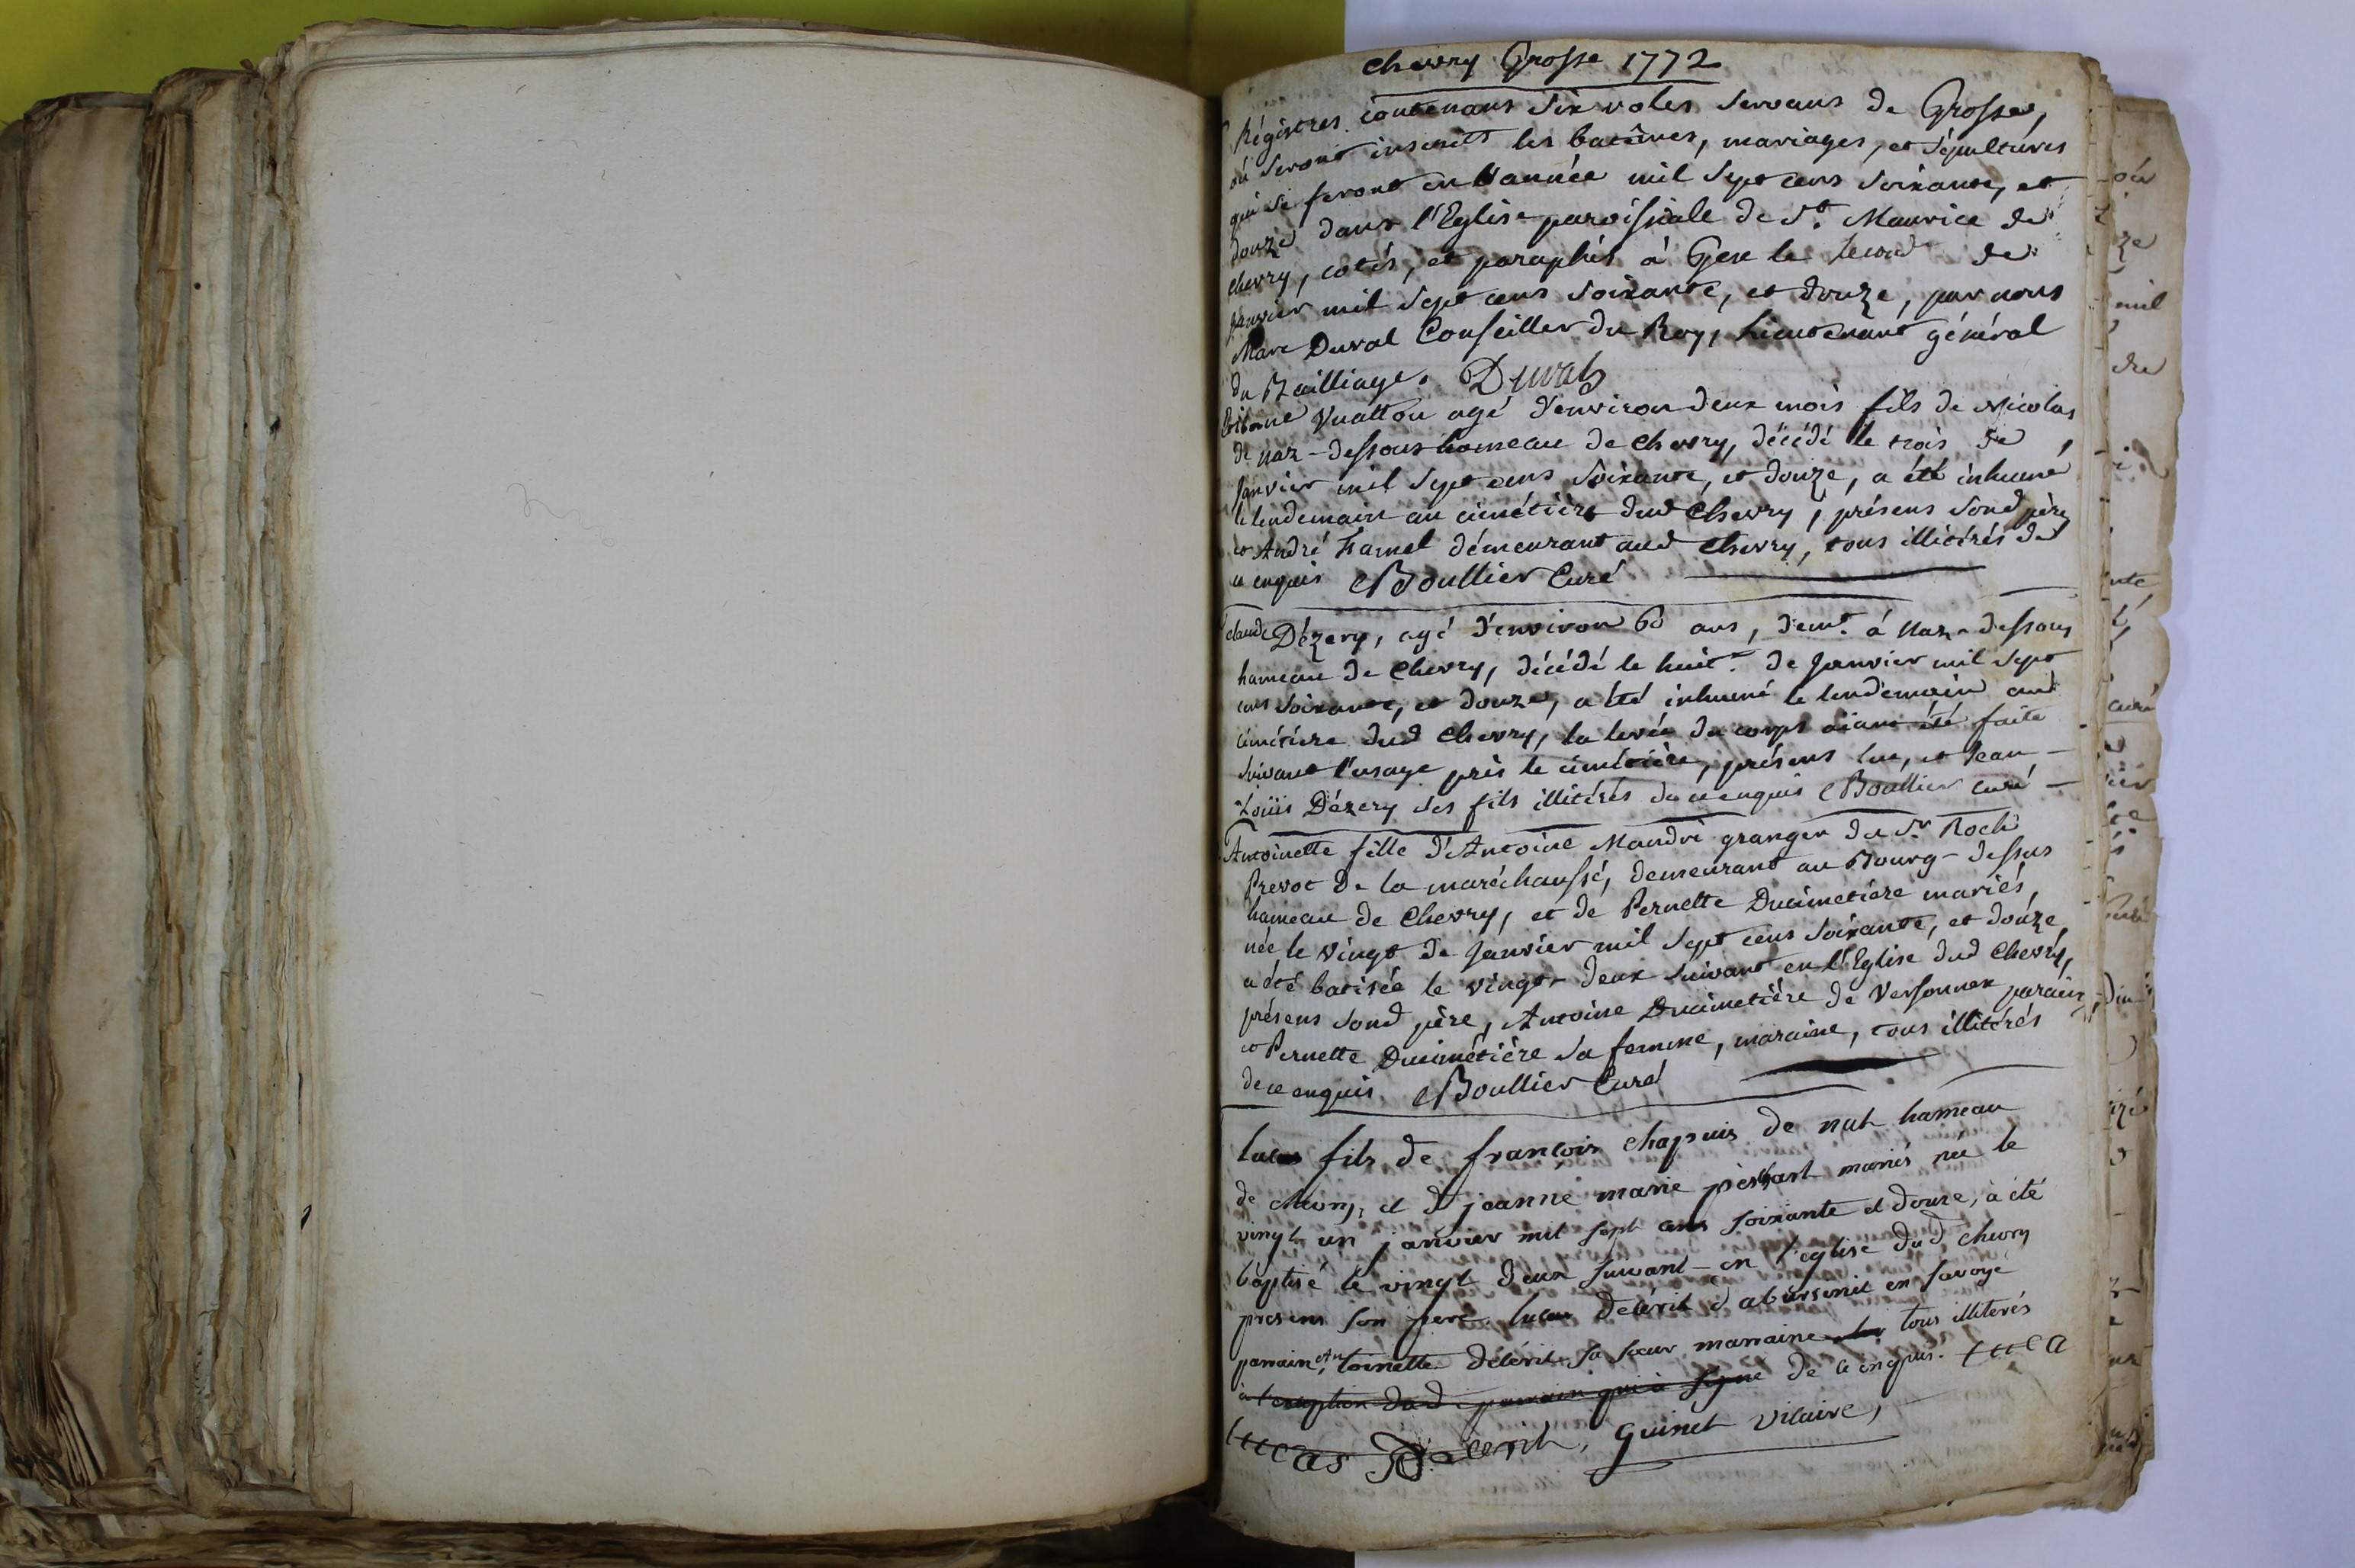 chevry Grosse 1772
Régistres contenans six roles servans de Grosse,
où seront inscrits les batêmes, mariages, et sépultures
qui se feront en l'année mil sept cens soixante, et
douze dans l'Eglise paroissiale de St. Maurice de
chevry, cotés, et paraphés à Gex le second de
janvier mil sept cens soixante, et douze, par nous
Marc Duval Conseiller du Roy, Lieutenant général
du Bailliage. Duval
Vuattou agé d'environ deux mois fils de Nicolas
de naz-dessous hameau de chevry, décédé le trois de
janvier mil sept cens soixante, et douze, a été inhumé
le lendemain au cimétière dud chevry, présens sond père
et André Hamel démeurant aud chevry, tous illitérés de
ce enquis Boullier Curé
Claude Dézery, agé d'environ 60 ans, demt. à Naz-dessous
hameau de chevry, décédé le huit. de janvier mil sept
cens soixante, et douze, a été inhumé le lendemain aud
cimétière dud chevry, la levée du corps aiant été faite
suivant l'usage près le cimétière, présens luc, et Jean
Loüis Dézery ses fils illitérés de ce enquis Boullier curé
Antoinette fille d'Antoine Mandri granger du Sr Roch
Prevot De la maréchaussé, demeurant au Bourg-dessus
hameau de chevry, et de Pernette Ducimetière mariés,
née le vingt de janvier mil sept cens soixante, et douze,
a été batisée le vingt-deux suivant en l'Eglise dud chevry,
présens sond père, Antoine Ducimetière de Versonnex parain,
et Pernette Ducimétière sa femme, maraine, tous illitérés
de ce enquis. Boullier Curé
lucas fils de francois chapuis de nah hameau
de chevry, et d jeanne marie mariés né le
vingt un janvier mil sept cens soixante et douze, à été
baptisé le vingt deux suivant en l'eglise dud chevry
presens son pere, lucas delérit en savoye
parrain, et Antoinette delérit sa soeur marraine tous illiterés
à l'exception dud parrain qui à signé de ce enquis. luca
lucas Guinet vicaire,